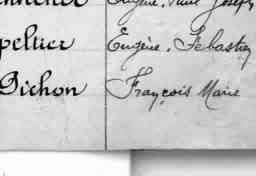 Eugène, Paul Joseph
peltier Eugène, Sébastien
Pichon François Marie